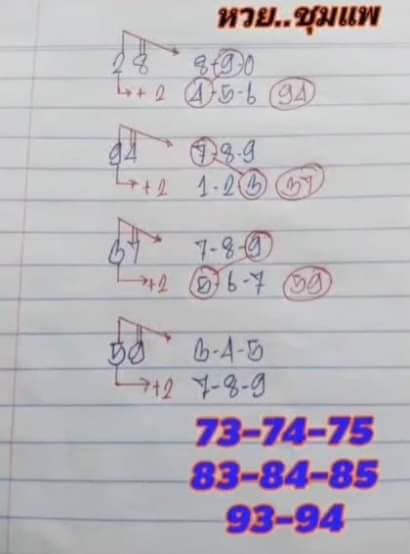 หวย..ชุมแพ
28 8-9-0
+2 4-5-6 94
94 7-8-9
+2 1-2-3 37
37 7-8-9
+2 5-6-7 59
59 3-4-5
+2 7-8-9
73-74-75
83-84-85
93-94